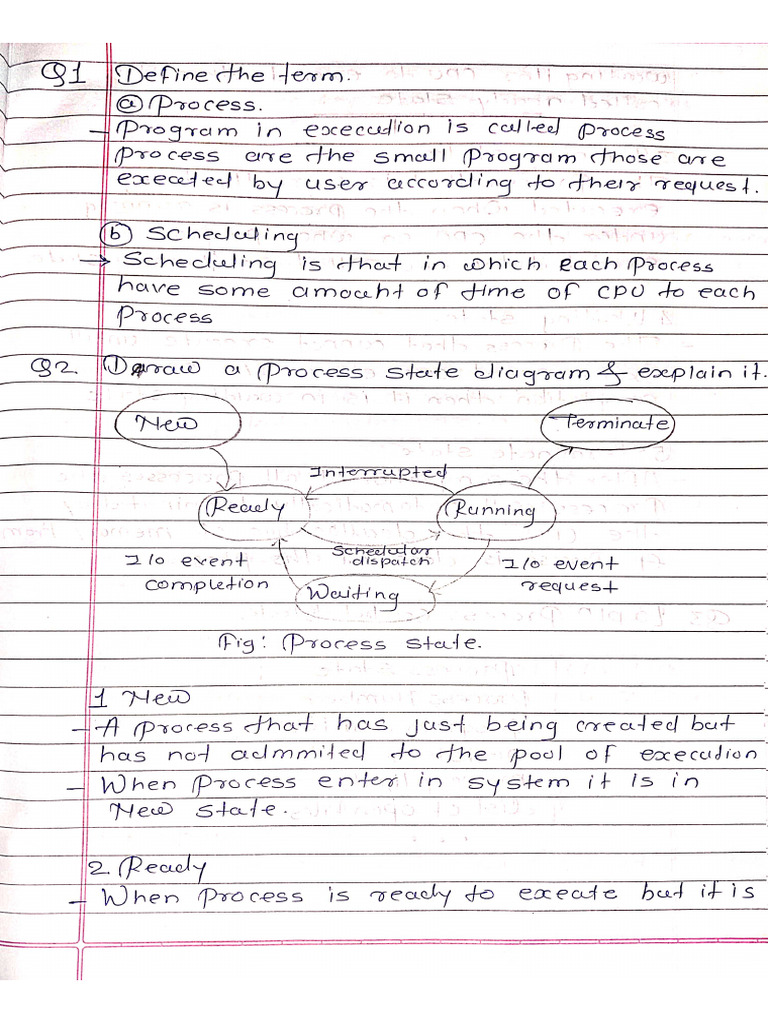 Q1 Define the term.
ⓐ Process.
- Program in execution is called process
process are the small program those are
execated by user according to their request.
ⓑ Scheduling
→ Scheduling is that in which each process
have some amount of time of CPU to each
process
Q2. Draw a process state diagram & explain it.
New Terminate
Interrupted
Ready Running
Schedular
dispatch
I/o event I/o event
completion request
Waiting
Fig: Process state.
1 New
- A process that has just being created but
has not admmited to the pool of execution
- When process enter in system it is in
New state.
2. Ready
- When process is ready to execate but it is